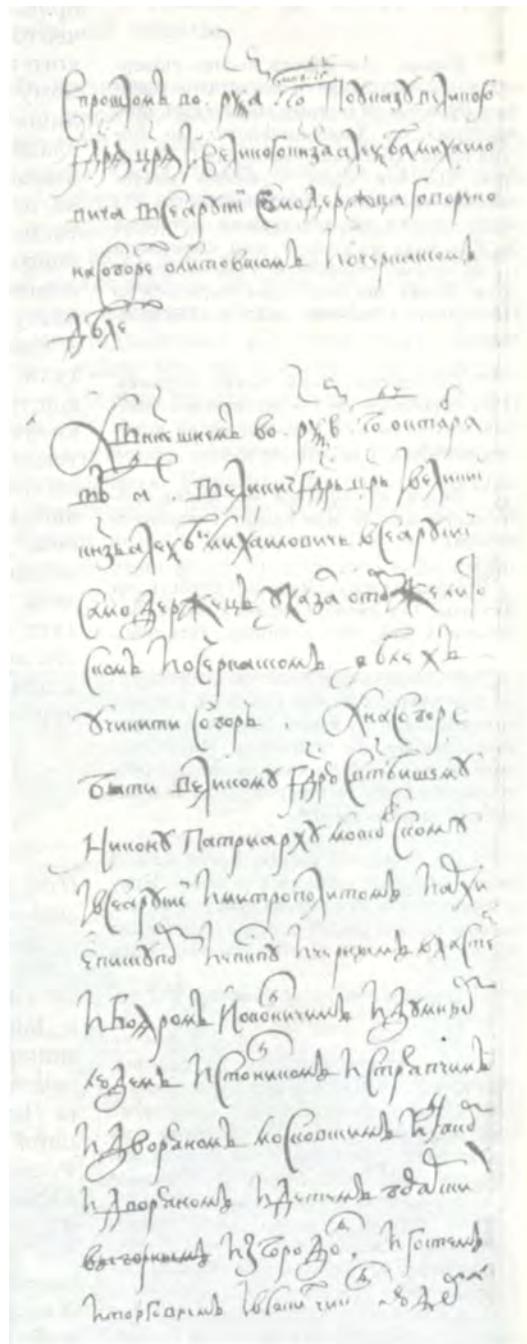 В прошломъ во рѯа м году по указу великого
гдря цря і великого кнзя алеѯѣя михаило
вича всеа русиі самодержца говорено
на соборе о литовскомъ и о черкаскомъ
дѣле
А в ннешнемъ во рѯв м году октября
въ а великиі гдрь црь і великиі
кнзь алеѯѣи михаиловичь всеа русиі
самодержецъ указал о тѣх же лито
скомъ и о черкаскомъ дѣлехъ
учинити соборъ а на соборе
быти великому гдрю святѣишему
никону патриарху московскому
и всеа русиі и митрополитомъ и архи
епископом и епискпу и чернымъ властем
и бояромъ и околничимъ и думным
людемъ и столникомъ и стряпчимъ
и дворяномъ московскимъ и дьяком
и дворяномъ и детемъ боярским
выборнымъ из городов и гостемъ
и торговымъ и всяких чинов людем